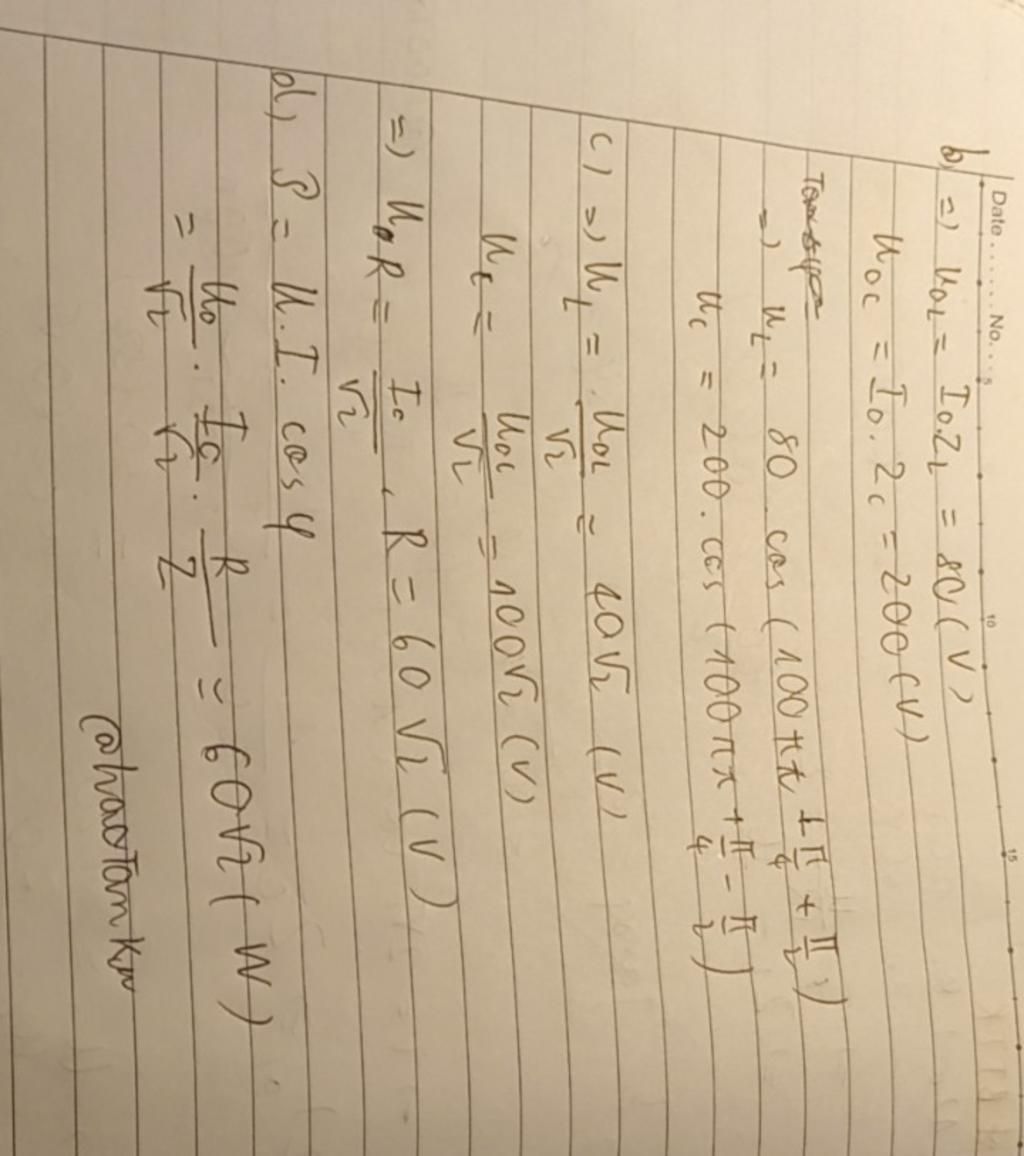 Date ...... No. ..
5 10 15
b, =) U₀L = I₀.Z_L = 80 (V)
U₀C = I₀. Z_C = 200 (V)
=) u_L = 80 cos (100πt + π/4 + π/2)
u_C = 200. cos (100πt + π/4 - π/2)
c) =) U_L = U₀L/√2 = 40√2 (V)
U_C = U₀C/√2 = 100√2 (V)
=) U₀R = I₀/√2 . R = 60√2 (V)
d) P = U.I. cos φ
= U₀/√2 . I₀/√2 . R/Z = 60√2 (W)
@haotankw